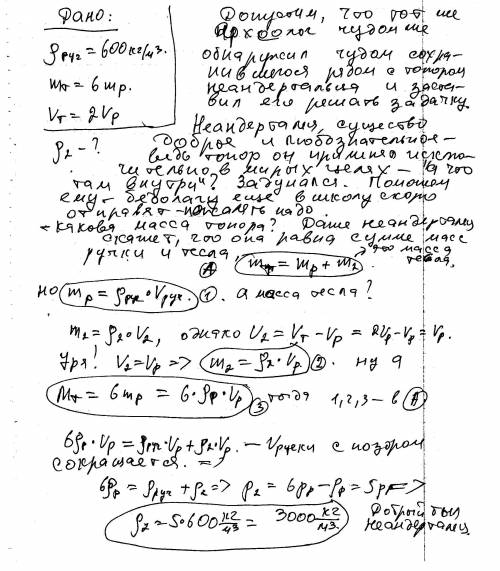 Дано:
ρруч = 600 кг/м3.
mт = 6 mр.
Vт = 2Vр
ρ2 - ?
Допустим, что тот же
археолог чудом же
обнаружил чудом сохра-
нившегося рядом с топором
неандертальца и заста-
вил его решать задачку.
Неандерталец, существо
доброе и любознательное -
ведь топор он применял исклю-
чительно в мирных целях - "а что
там внутри"? Задумался. Поможем
ему - бедолагу еще в школу скоро
отправят - писать надо.
- Какова масса топора? Даже неандерталец
скажет, что она равна сумме масс
ручки и тесла. это масса
тесла.
А mт = mр + m2.
но mр = ρруч · Vруч. 1. а масса тесла?
m2 = ρ2 · V2, однако V2 = Vт - Vр = 2Vр - Vр = Vр.
Ура! V2 = Vр => m2 = ρ2 · Vр 2. ну а
Mт = 6 mр = 6 · ρр · Vр 3 тогда 1, 2, 3 - в А
6ρр · Vр = ρруч · Vр + ρ2 · Vр. - Vручки с позором
сокращается. =>
6ρр = ρруч + ρ2 => ρ2 = 6ρр - ρр = 5ρр =>
ρ2 = 5·600 кг/м3 = 3000 кг/м3. Добрый был
неандерталец.